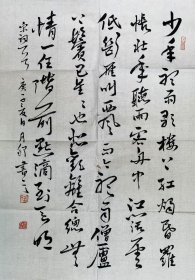 少年聽雨歌樓上紅燭昏羅
帳壯年聽雨客舟中江闊雲
低斷雁叫西風而今聽雨僧廬
下鬢已星星也悲歡離合總無
情一任階前點滴到天明